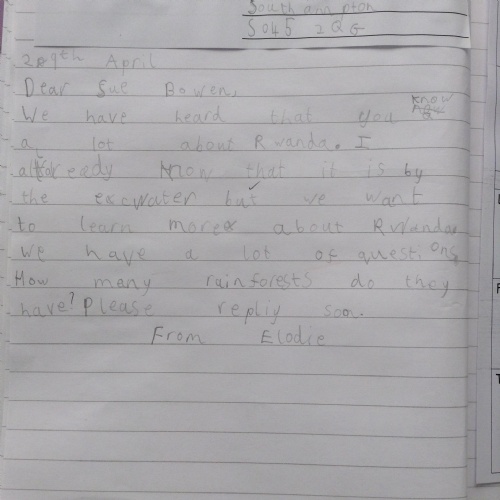 Southampton
SO45 2QG
29th April
Dear Sue Bowen,
We have heard that you know
a lot about Rwanda. I
already know that it is by
the excwater but we want
to learn more about Rwanda.
We have a lot of questions
How many rainforests do they
have? Please repliy soon.
From Elodie